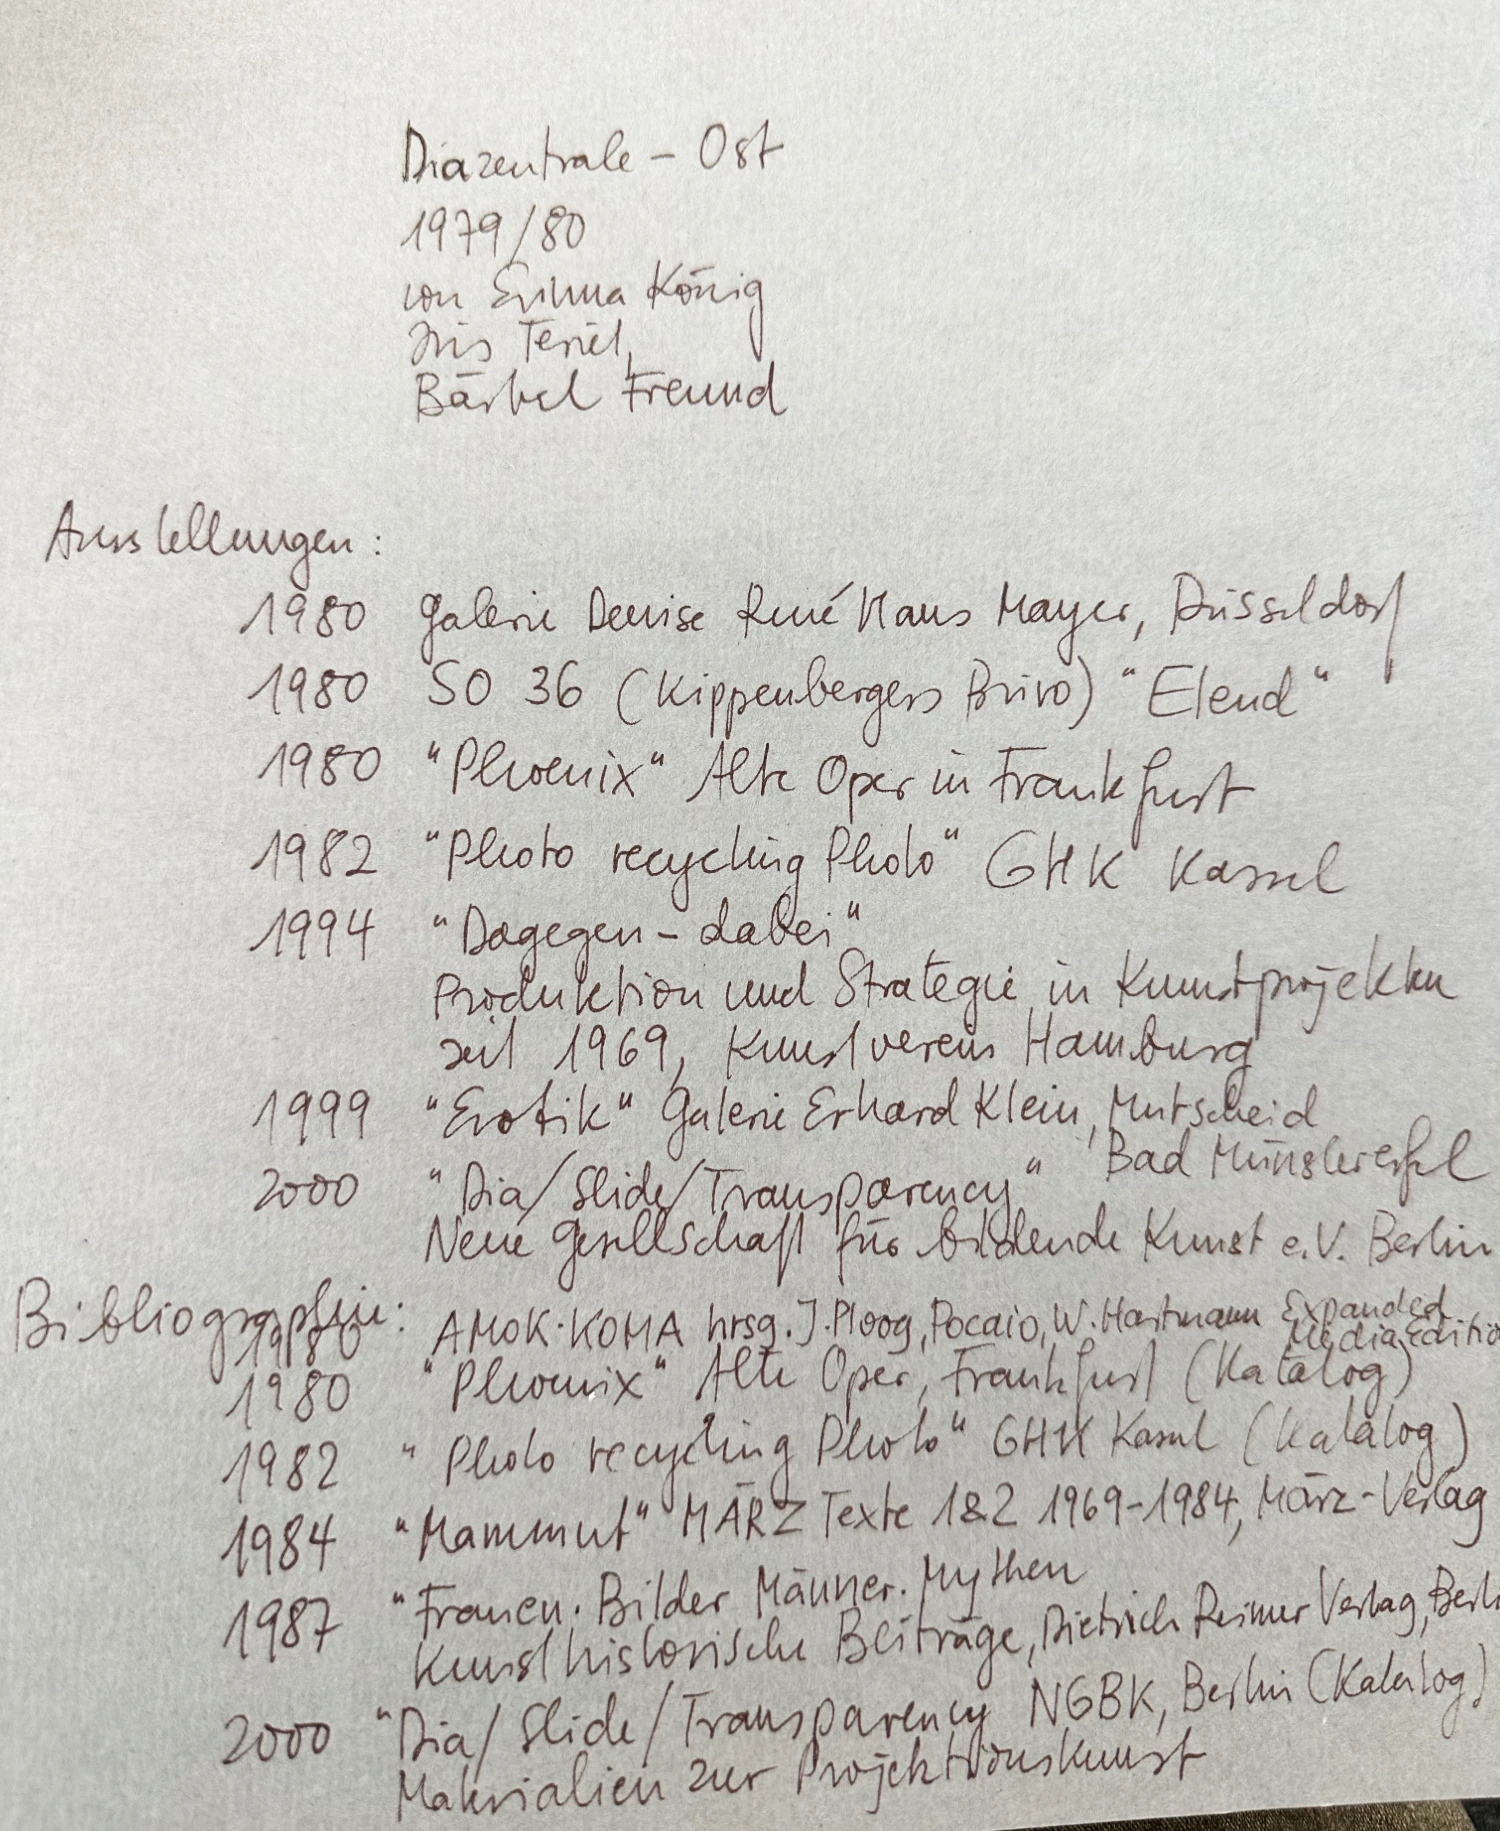 Diazentrale – Ost
1979/80
von Emma König
Iris Teriel,
Bärbel Freund
Ausstellungen:
1980 Galerie Denise René Hans Mayer, Düsseldorf
1980 SO 36 (Kippenbergers Büro) "Elend"
1980 "Phoenix" Alte Oper in Frankfurt
1982 "Photo recycling Photo" GHK Kassel
1994 "Dagegen – dabei"
Produktion und Strategie in Kunstprojekten
seit 1969, Kunstverein Hamburg
1999 "Erotik" Galerie Erhard Klein, Mutscheid
Bad Münstereifel
2000 "Dia/Slide/Transparency"
Neue Gesellschaft für bildende Kunst e.V. Berlin
Bibliographie:
1980 AMOK·KOMA hrsg. J. Ploog, Pocaio, W. Hartmann Expanded
Media Editio
1980 "Phoenix" Alte Oper, Frankfurt (Katalog)
1982 "Photo recycling Photo" GHK Kassel (Katalog)
1984 "Mammut" MÄRZ Texte 1&2 1969–1984, März-Verlag
1987 "Frauen. Bilder Männer. Mythen
Kunsthistorische Beiträge, Dietrich Reimer Verlag, Berli
2000 "Dia/Slide/Transparency NGBK, Berlin (Katalog)
Materialien zur Projektionskunst